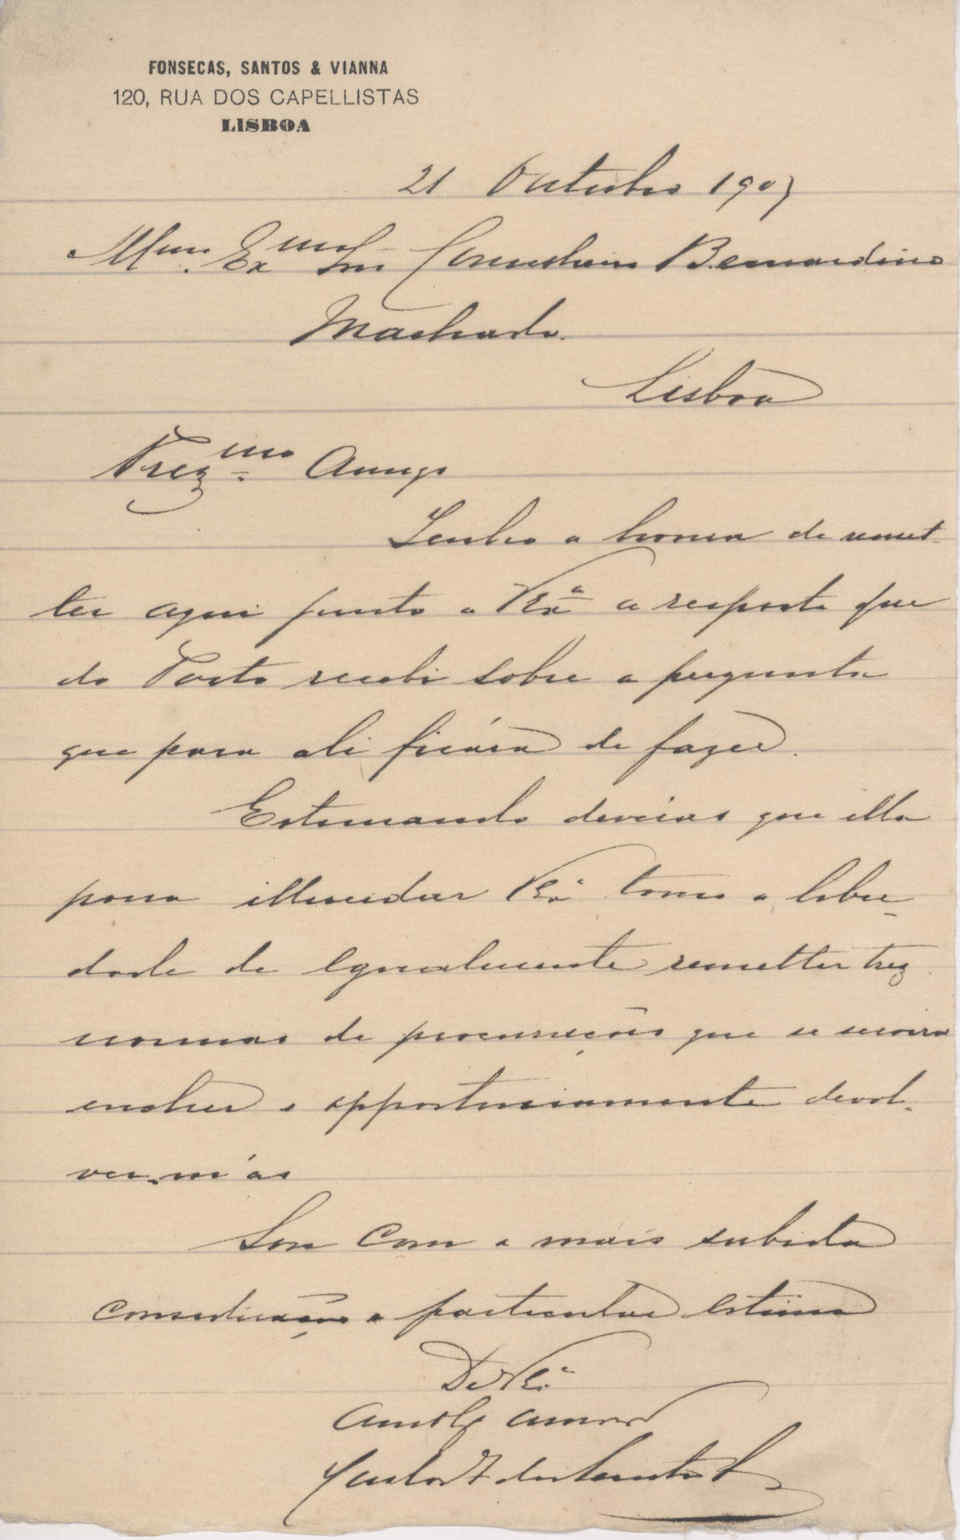 FONSECAS, SANTOS & VIANNA
120, RUA DOS CAPELLISTAS
LISBOA
21 Outubro 1907
Illmo. Exmo Snr Conselheiro Bernardino
Machado.
Lisboa
Prezmo Amigo
Tenho a honra de remet-
ter aqui junto a VExa a resposta que
do Porto recebi sobre a pergunta
que para ali ficára de fazer.
Estimando deveras que ella
possa illucidar VExa tomo a liber-
dade de egualmente remetter trez
normas de procurações que se servirá
encher e opportunamente devol-
ver-m'as
Sou com a mais subida
consideração e particular estima
De VExa
Amo
dos Santos